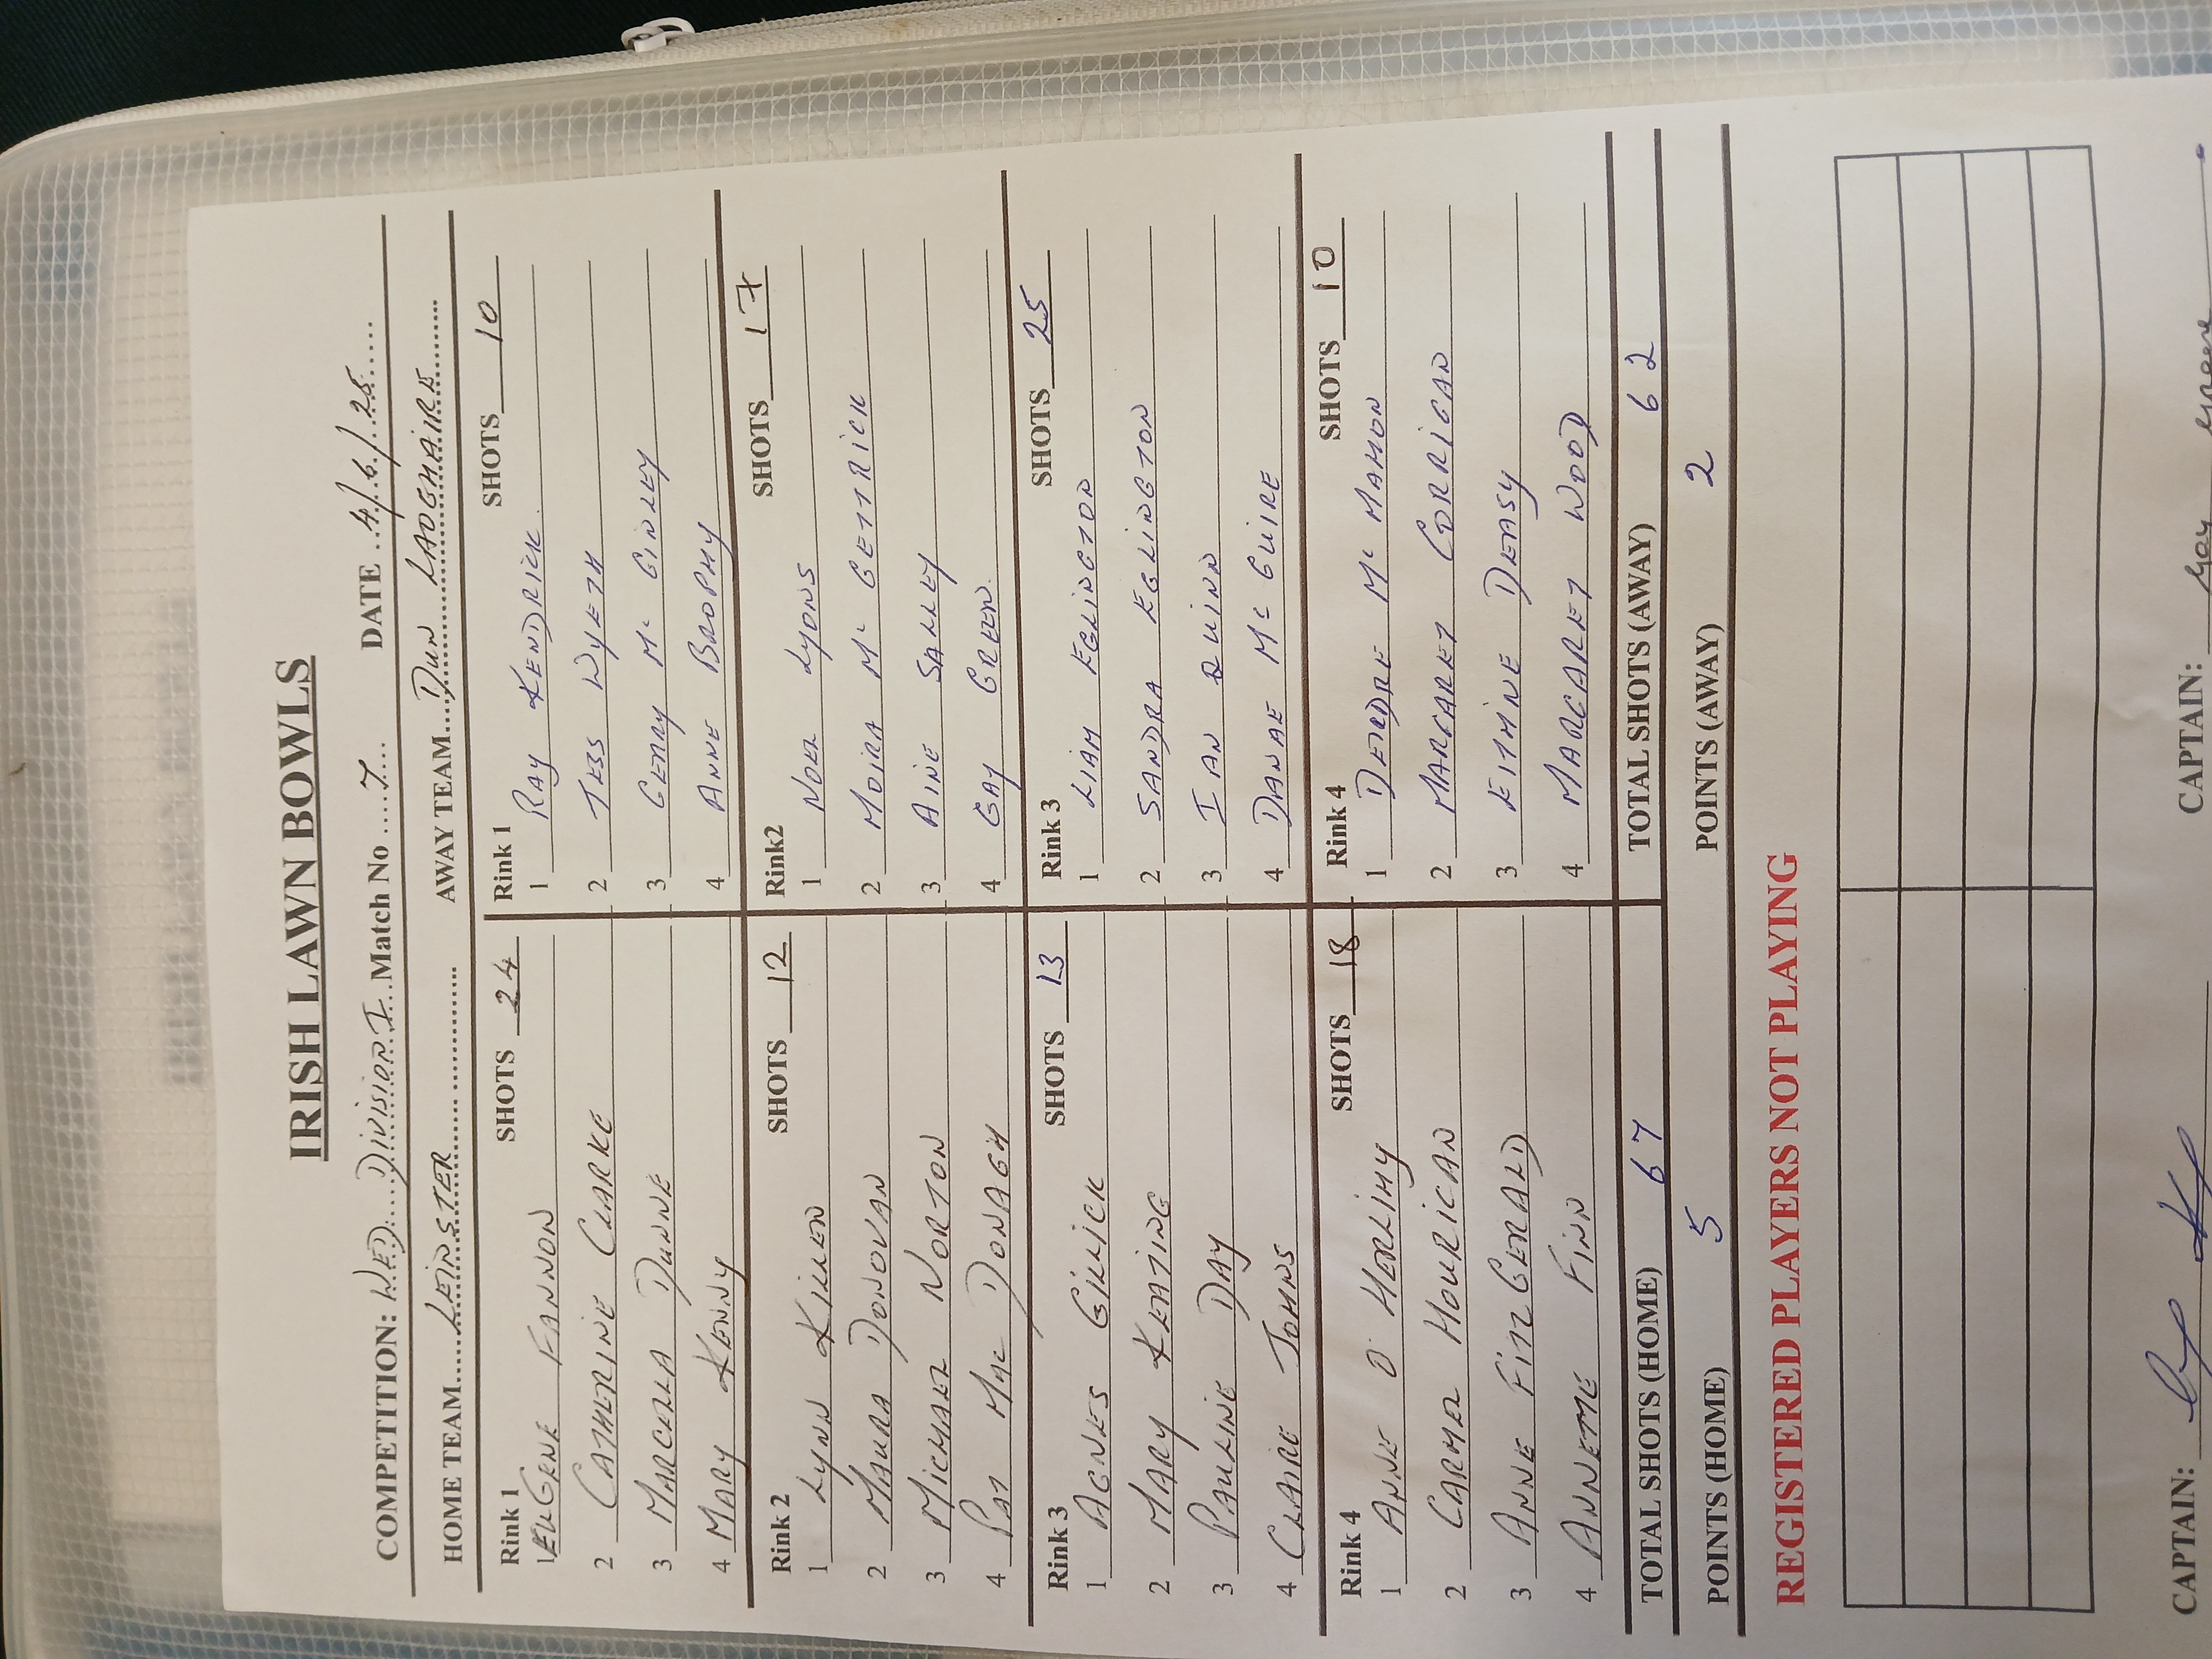 IRISH LAWN BOWLS
COMPETITION: WED DIVISION 1 Match No 7 DATE 4/6/25
HOME TEAM LEINSTER AWAY TEAM DUN LAOGHAIRE
Rink 1 SHOTS 24
1 EUGENE FANNON
2 CATHERINE CLARKE
3 MARCELLA DUNNE
4 MARY KENNY
Rink 1 SHOTS 10
1 RAY KENDRICK
2 TESS WYETH
3 GERRY Mc GINLEY
4 ANNE BROPHY
Rink 2 SHOTS 12
1 LYNN KILLEN
2 MAURA DONOVAN
3 MICHAEL NORTON
4 PAT MAC DONAGH
Rink2 SHOTS 17
1 NOEL LYONS
2 MOIRA Mc GETTRICK
3 AINE SALLEY
4 GAY GREEN
Rink 3 SHOTS 13
1 AGNES GILLICK
2 MARY KEATING
3 PAULINE DAY
4 CLAIRE JOHNS
Rink 3 SHOTS 25
1 LIAM EGLINGTON
2 SANDRA EGLINGTON
3 IAN QUINN
4 DANAE Mc GUIRE
Rink 4 SHOTS 18
1 ANNE O' HERLIHY
2 CARMEL HOURICAN
3 ANNE FITZGERALD
4 ANNEME FINN
Rink 4 SHOTS 10
1 DEIRDRE Mc MAHON
2 MARGARET CORRIGAN
3 EITHNE DEASY
4 MARGARET WOOD
TOTAL SHOTS (HOME) 67 TOTAL SHOTS (AWAY) 62
POINTS (HOME) 5 POINTS (AWAY) 2
REGISTERED PLAYERS NOT PLAYING
CAPTAIN: CAPTAIN: Gay Greene